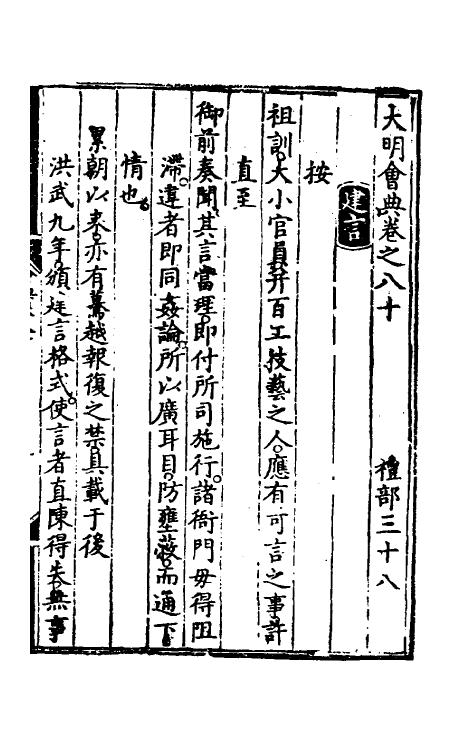 大明會典卷之八十 禮部三十八
建言
按
祖訓大小官員并百工技藝之人應有可言之事許
直至
御前奏聞其言當理即付所司施行諸衙門毋得阻
滯違者即同姦論所以廣耳目防壅蔽而通下
情也
累朝以來亦有驀越報復之禁具載于後
洪武九年頒建言格式使言者直陳得失無事